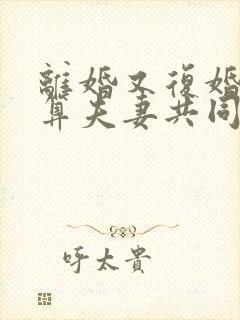 離婚又復婚
算夫妻共同
呼太貴